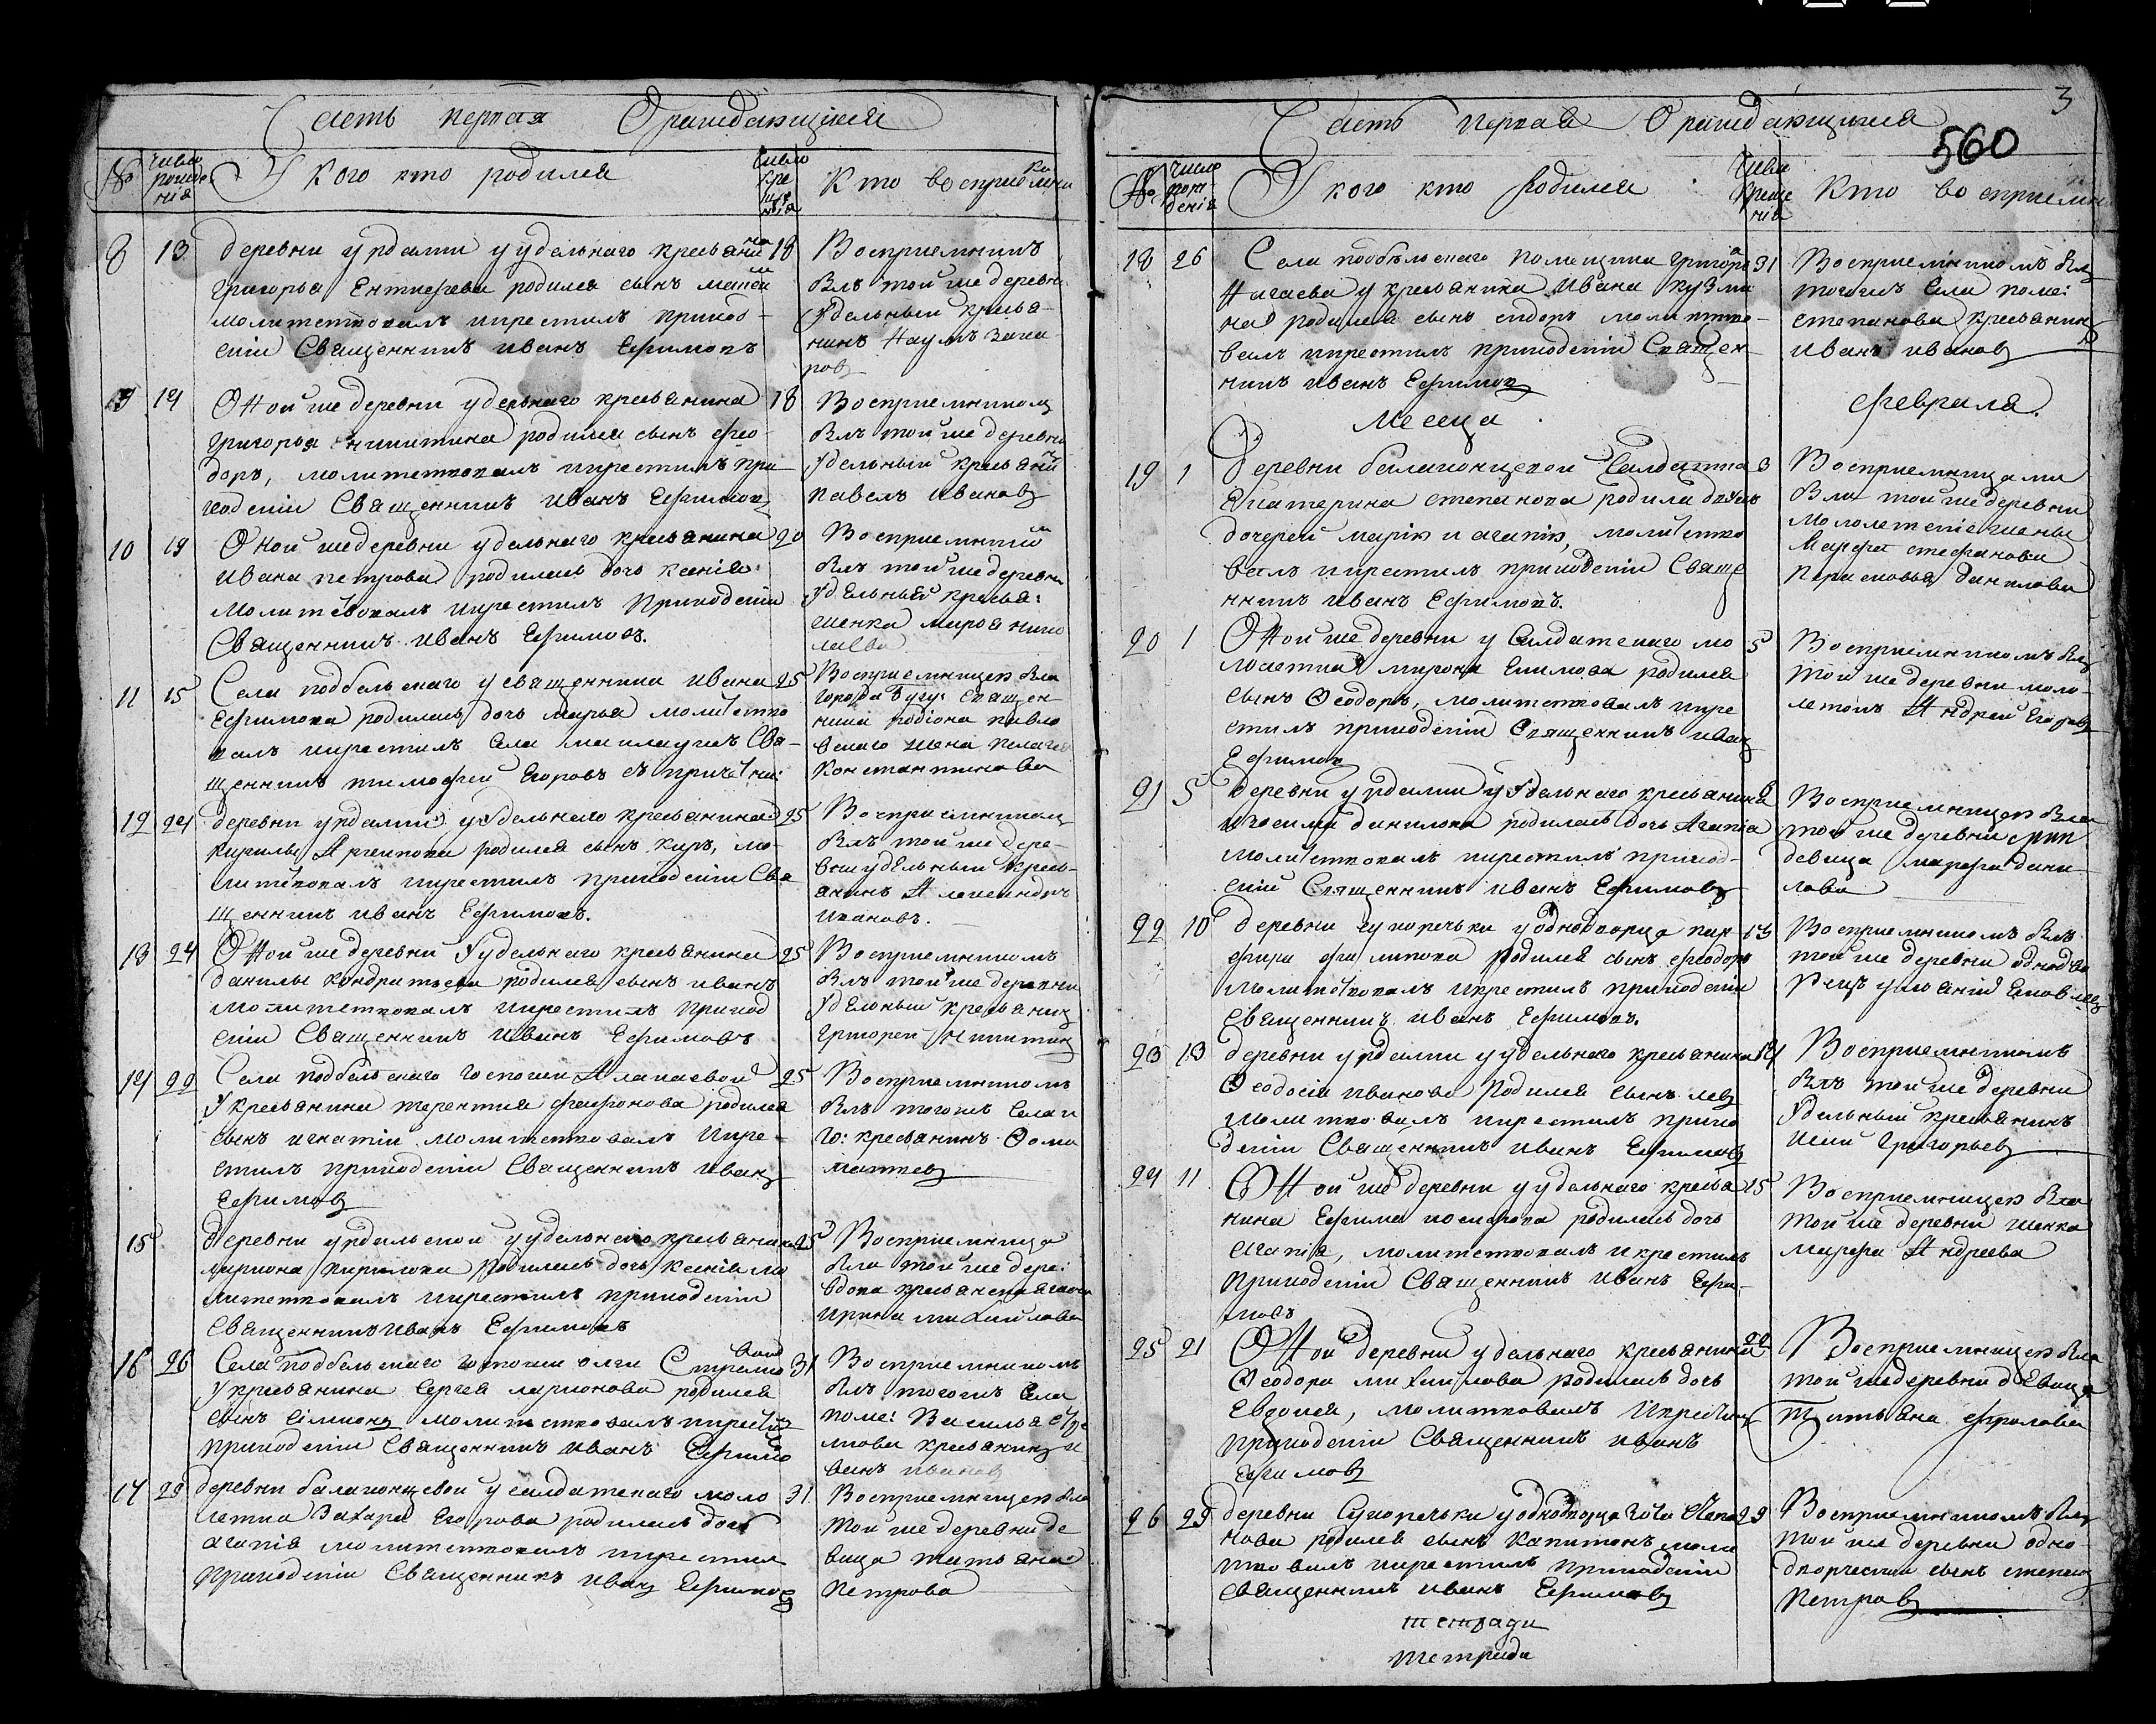 Часть первая О раждающихся
№
число рожде нія
У кого кто родился
число кре ще нія
Кто восприемники
8 13
деревни у удельнаго крестьянина 18
Григорья Евтифеева родился сынъ
молитствовалъ икрестилъ приход-
скіи Священникъ Иванъ Ефимовъ
Восприемникъ
былъ тойже деревни
Удельный крестья-
нинъ Наумъ Заха
ровъ
9 14
Онойже деревни удельнаго крестьянина 18
Григорья Никитина родился сынъ фео-
доръ, молитствовалъ икрестилъ при-
ходскіи Священникъ Иванъ Ефимовъ
Восприемникомъ
былъ тойже деревни
Удельный крестьянинъ
Павелъ Ивановъ
10 19
Оной жедеревни удельнаго крестьянина 20
Ивана Петрова родилась дочь Ксенія
Молитвовалъ икрестилъ Приходскіи
Священникъ Иванъ Ефимовъ.
Восприемницей
былъ тойже деревни
Удельный крестья:
женка Марфа Нико
лаева
11 15
Села подбельскаго у священника Ивана 25
Ефимова родилась дочь Марья молитство
валъ икрестилъ Села Свя-
щенникъ тимофеи Егоровъ съ причетни:
Восприемницею была
города Бугу: Священ
ника Родіона Павло
вскаго жена Пелагея
Константинова
12 24
деревни у Удельнаго крестьянина 25
Кирилы родился сынъ Киръ, мо-
литвовалъ икрестилъ приходскіи Свя
щенникъ Иванъ Ефимовъ.
Восприемникомъ
былъ тойже дере-
вни удельный кресть-
янинъ Александръ
Ивановъ.
13 24
Онойже деревни Уудельнаго крестьянина 25
данилы Кондратьева родился сынъ Иванъ
молитствовалъ икрестилъ приход
скіи Священникъ Иванъ Ефимовъ
Восприемникомъ
былъ тойже деревни
Удельный крестьянинъ
Григореи Никитинъ
14 22
Села подбельскаго Госпожи Алакаевой 25
У крестьянина терентия Фафонова родился
сынъ игнатіи молитствовалъ икре-
стилъ приходскіи Священникъ Иванъ
Ефимовъ
Восприемникомъ
былъ тогожъ Села и
го: крестьянинъ Ѳома
Матвеевъ
15
Деревни уудельнаго крестьянина 25
лариона Кирилова родилась дочь Ксенія мо
литствовалъ икрестилъ приходскіи
Священникъ Иванъ Ефимовъ
Восприемница
была тойже дере:
вдова крестьянская жена
Ирина Михайлова
16 26
Села Подбельскаго госпожи олги 31
Укрестьянина Сергея ларионова родился
сынъ Симионъ молитствовалъ икрестилъ
приходскіи Священникъ Иванъ Ефимо
Восприемникомъ
былъ тогожъ Села
поме: Василья
крестьянинъ и
ванъ ивановъ
17 29
деревни балахонцевой у салдатскаго моло 31
летка Захара Егорова родилась дочь
агапія молитствовалъ икрестилъ
приходскіи Священникъ Иванъ Ефимовъ
Восприемницею была
тойже деревни де
вица татьяна
Петрова
3
560
Часть первая О раждающихся
№
число рож- денія
У кого кто родился
Число креще нія
Кто восприемни
18 26
Села подбельскаго помещика Григорья 31
Нагаева у крестьянина Ивана кузми
на родился сынъ сидоръ молитво-
валъ икрестилъ приходскіи Священ-
никъ Иванъ Ефимовъ
Восприемникомъ былъ
тогожъ Села поме:
степанова крестьянинъ
Иванъ ивановъ
Месеца
февраля.
19 1
Деревни балахонцевой Салдатка 3
Екатерина степанова родила двухъ
дочерей марію и агапію, молитство
валъ икрестилъ приходскіи Свяще
нникъ Иванъ Ефимовъ.
Восприемницами
были тойже деревни
Молодетскіе жены
Марфа стефанова
Парасковья данилова
20 1
Онойже деревни у Салдатскаго мо 5
лолетка мирона родился
сынъ Ѳеодоръ, молитствовалъ икре
стилъ приходскіи Священникъ иванъ
Ефимовъ
Восприемникомъ былъ
Тойже деревни моло-
летокъ Андреи Егоровъ
21 5
деревни у Удельнаго крестьянина
данилова родилась дочь Агапіа
молитствовалъ икрестилъ приход-
скіи Священникъ Иванъ Ефимовъ
Восприемницею была
тойже деревни
девица марфа дани
лова
22 10
деревни Сухоречки у однодворца пар 13
фира филипова родился сынъ феодоръ
Молитвовалъ икрестилъ приходскіи
Священникъ Иванъ Ефимовъ.
Восприемникомъ былъ
тойже деревни однодво
рецъ ульянъ
23 13
деревни у удельнаго крестьянина 14
Ѳеодосія иванова родился сынъ левъ
молитвовалъ икрестилъ прихо
дскіи Священникъ Иванъ Ефимовъ
Восприемникомъ
былъ тойже деревни
Удельный крестьянинъ
Григорьевъ
24 11
Онойже деревни у удельнаго крестья 15
нина Ефима иосифова родилась дочь
Агапія, молитствовалъ икрестилъ
приходскіи Священникъ Иванъ Ефи-
мовъ
Восприемницею была
тойже деревни женка
марфа Андреева
25 21
Оной деревни удельнаго крестьянина 22
Ѳеодора михаилова родилась дочь
Евдокея, молитвовалъ Икрестилъ
приходскіи Священникъ Иванъ
Ефимовъ
Восприемницею была
тойжедеревни девица
Татьяна фролова
26 29
деревни Сухоречки у однодворца Степа 29
нова родился сынъ Капитонъ моли
твовалъ икрестилъ приходскіи
Священникъ Иванъ Ефимовъ
Восприемникомъ былъ
тойже деревни одно-
дворческіи сынъ степанъ
Петровъ
тетради
тетради